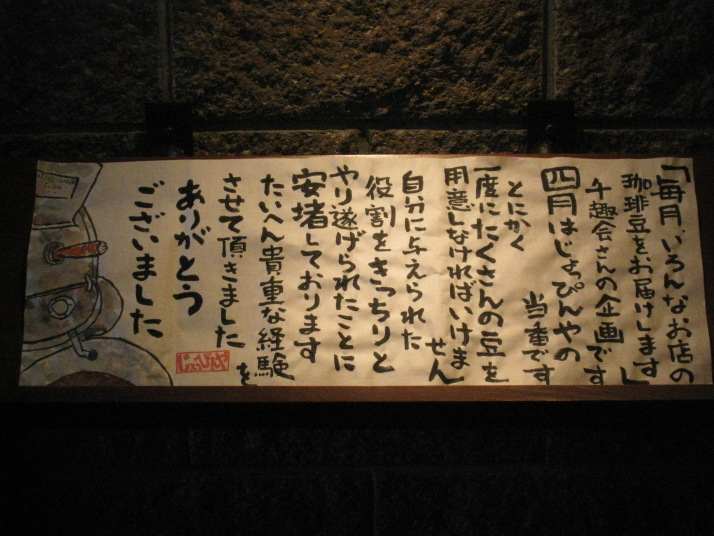 「毎月いろんなお店の
珈琲豆をお届けします」
千趣会さんの企画です
四月はじょっぴんやの
当番です
とにかく
一度にたくさんの豆を
用意しなければいけま
せん
自分に与えられた
役割をきっちりと
やり遂げられたことに
安堵しております
たいへん貴重な経験を
させて頂きました
ありがとう
ございました